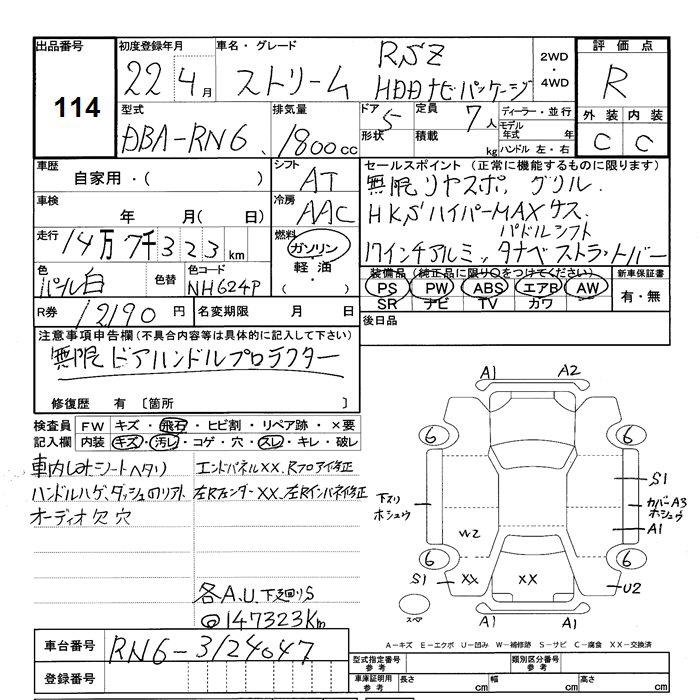 出品番号 初度登録年月 車名・グレード RSZ 2WD ・ 4WD 評価点
114 22 4月 ストリーム HDDナビパッケージ R
型式 DBA-RN6 排気量 1800cc ドア 5 形状 定員 7人 積載 kg ディーラー・並行 モデル年式 年 ハンドル 左・右 外装 内装
C C
車歴 自家用・( ) シフト AT セールスポイント (正常に機能するものに限ります)
無限リヤスポ、グリル、
車検 年 月(日) 冷房 AAC HKSハイパーMAXサス、
パドルシフト
走行 14万7千323km 燃料 ガソリン・軽油・( ) 17インチアルミ、タナベストラットバー
色 パール白 色替 色コード NH624P 装備品 (純正品に限り○をつけてください) 新車保証書
PS PW ABS エアB AW 有・無
SR ナビ TV カワ
R券 12190円 名変期限 月 日 後日品
注意事項申告欄(不具合内容等は具体的に記入して下さい)
無限ドアハンドルプロテクター
修復歴 有 〔箇所 〕
検査員記入欄 FW キズ・飛石・ヒビ割・リペア跡・×要
内装 キズ・汚レ・コゲ・穴・スレ・キレ・破レ
車内しみシートヘタリ エンドパネルXX、Rフロアイ修正
ハンドルハゲ、ダッシュのリアト 左Rフェンダー XX、左Rインパネイ修正
オーディオ欠 穴
各A.U.下廻りS
@147323Km
A1 A2
6 6
S1
下スリ ホシュウ カバーA3 ホシュウ
A1
W2
6 6
S1 XX XX U2
スペア
A1 A1
A-キズ E-エクボ U-凹み W-補修跡 S-サビ C-腐食 XX-交換済
車台番号 RN6-3124047
登録番号
型式指定番号 参考 類別区分番号 参考
車庫証明用 参考 長さ cm 幅 cm 高さ cm